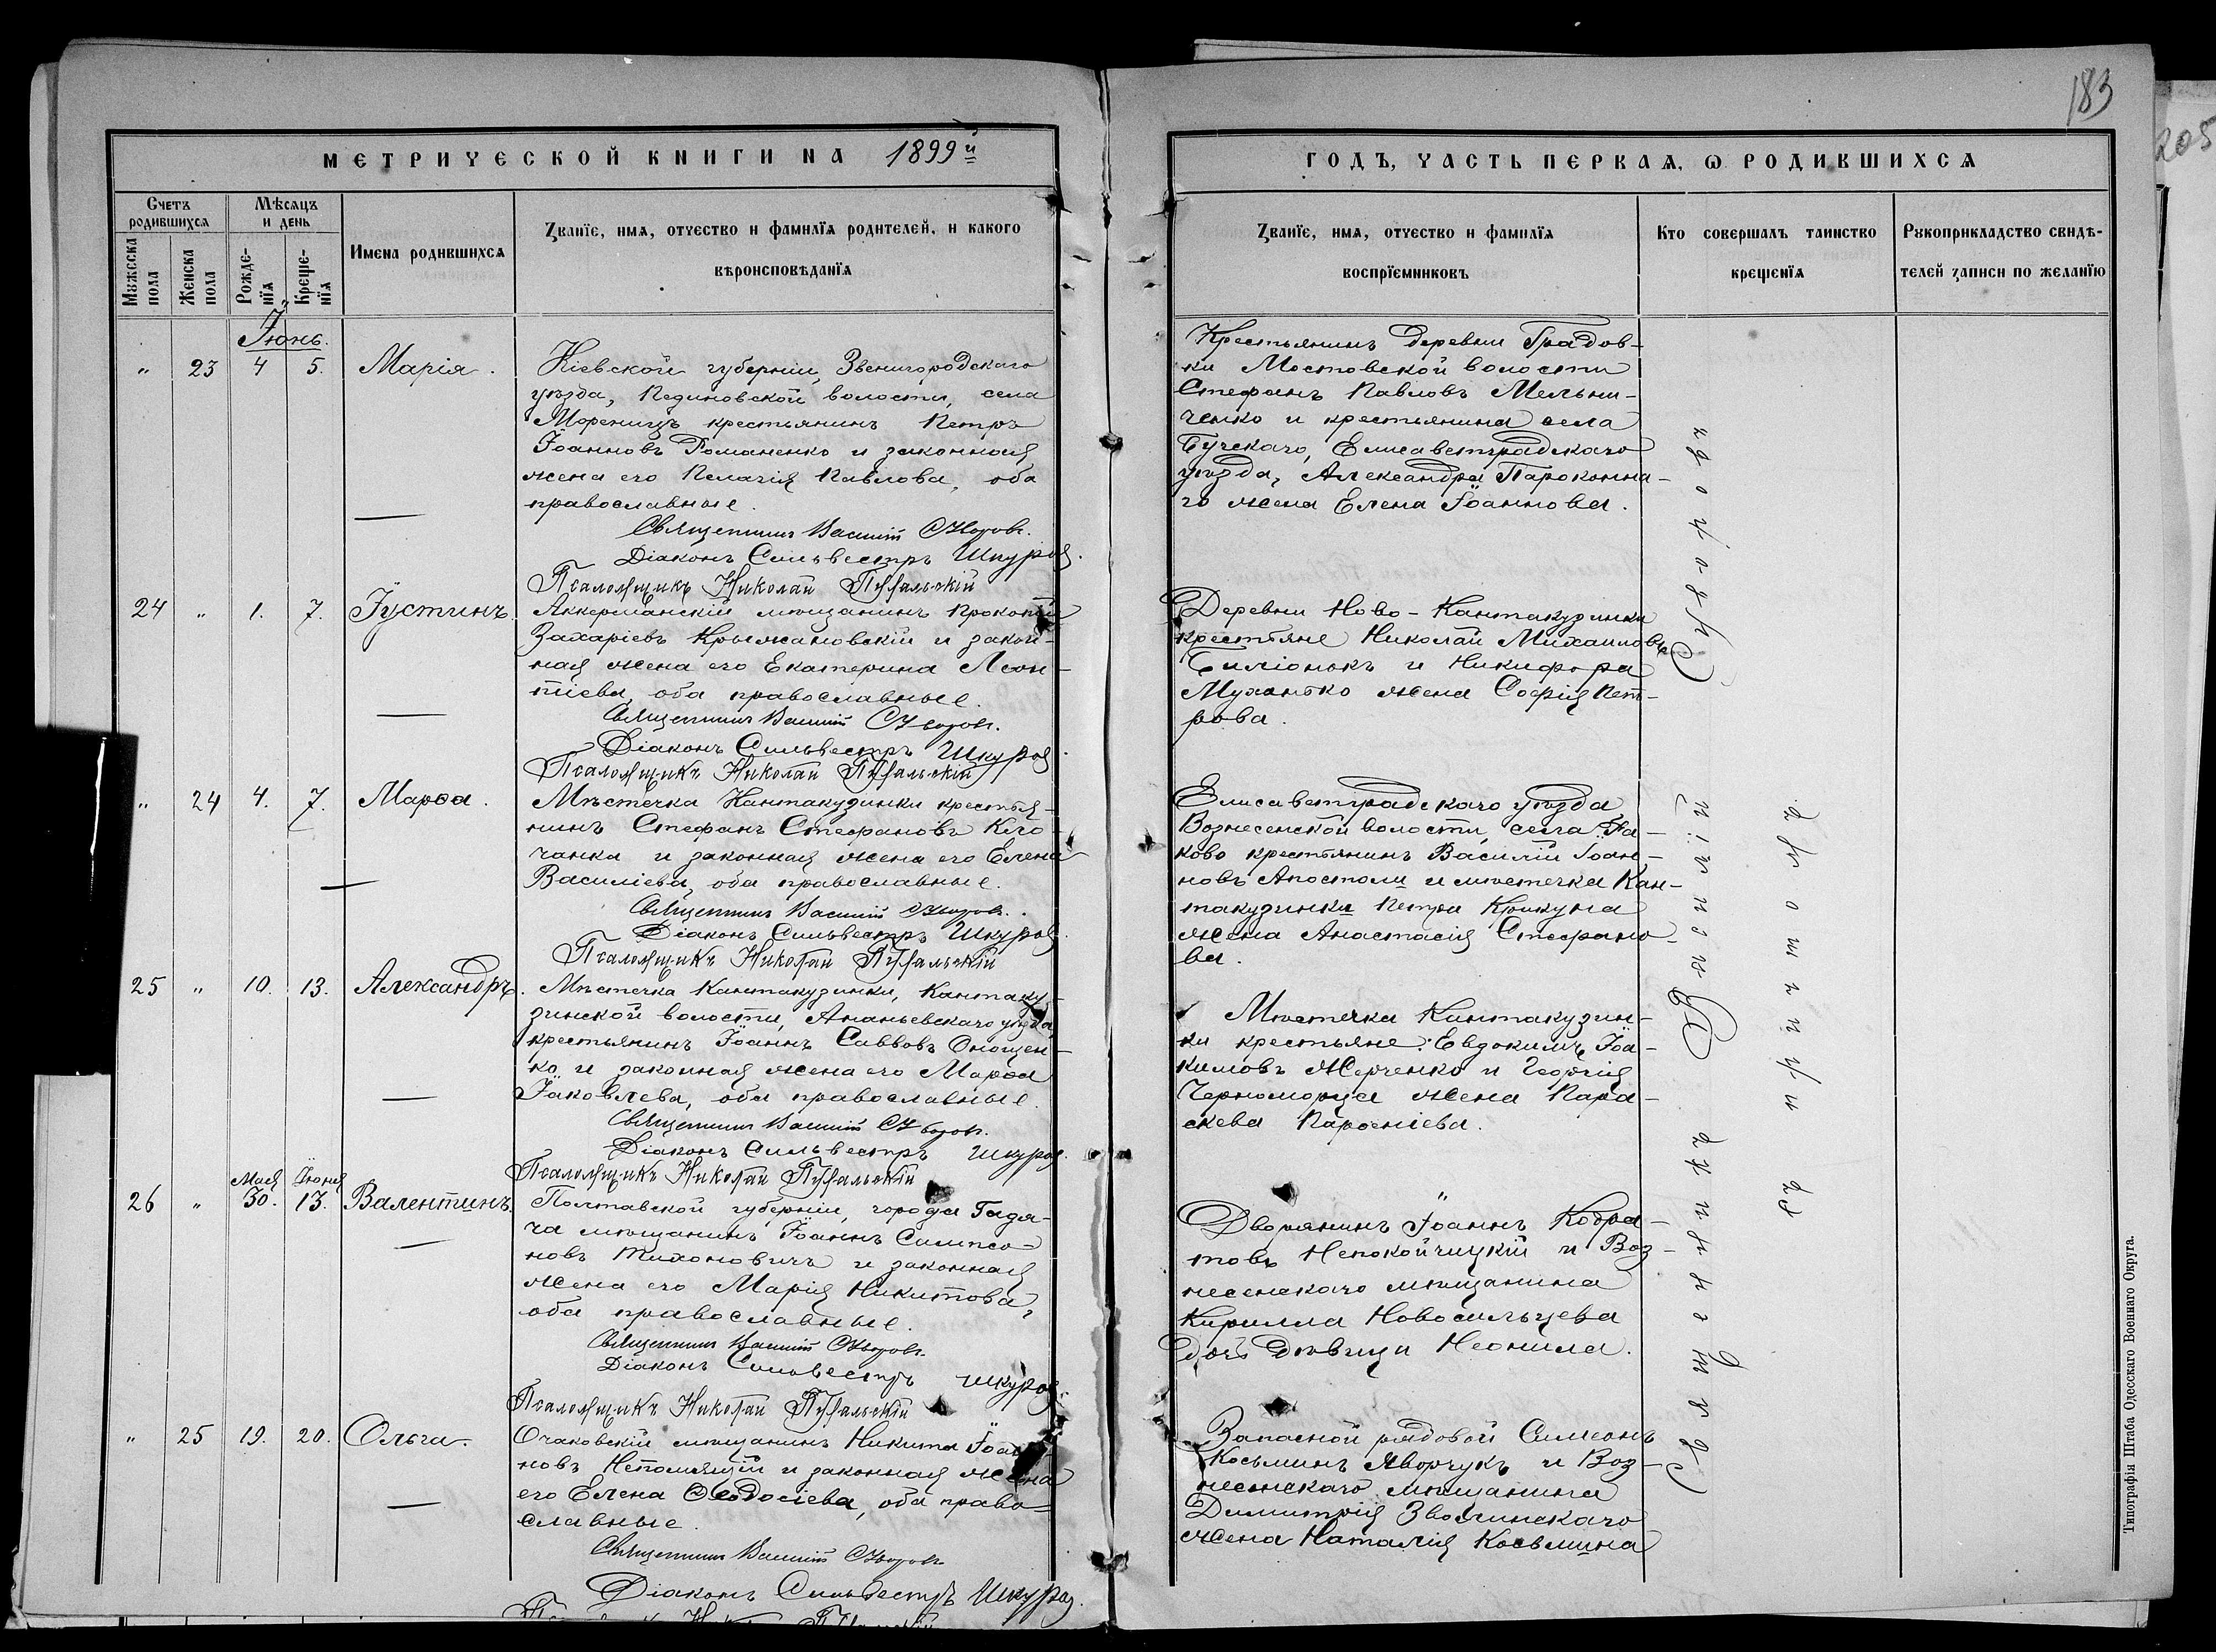 183
205
МЕТРИЧЕСКОЙ КНИГИ НА 1899й
ГОДЪ, ЧАСТЬ ПЕРВАЯ, Ѡ РОДИВШИХСЯ
Счетъ родившихся
Мужеска пола
Женска пола
Мѣсяцъ и день
Рожденїя
Крещенїя
Имена родившихся
Званїе, имя, отчество и фамилїя родителей, и какого
вѣроисповѣданїя
Званїе, имя, отчество и фамилїя
воспрїемниковъ
Кто совершалъ таинство
крещенїя
Рукоприкладство свидѣ-
телей записи по желанїю
Іюнь.
" 23 4 5. Марія.
Кіевской губерніи, Звенигородскаго
уѣзда, Пединовской волости, села
Моренцъ крестьянинъ Петръ
Іоанновъ Романенко и законная
жена его Пелагія Павлова, оба
православные.
Священникъ Василій
Діаконъ Сильвестръ Шкуроя.
Псаломщикъ Николай
Крестьянинъ деревни Градов-
ки Мостовской волости
Стефанъ Павловъ Мельни-
ченко и крестьянина села
Бугскаго, Елисаветградскаго
уѣзда, Александра Пароконна-
го жена Елена Іоаннова.
24 " 1. 7. Іустинъ.
Аккерманскій мѣщанинъ Прокопій
Захаріевъ Крыжановскій и закон-
ная жена его Екатерина Леон-
тіева, оба православные.
Священникъ Василій
Діаконъ Сильвестръ Шкуроя.
Псаломщикъ Николай
Деревни Ново-Кантакузинки
крестьяне Николай Михаиловъ
Биліонокъ и Никифора
Муханько жена Софія Пет-
рова.
" 24 4. 7. Марѳа.
Мѣстечка Кантакузинки крестья-
нинъ Стефанъ Стефановъ
чанка и законная жена его Елена
Василіева, оба православные.
Священникъ Василій
Діаконъ Сильвестръ Шкуроя.
Псаломщикъ Николай
Елисаветградскаго уѣзда
Вознесенской волости, села
ково крестьянинъ Василій Іоан-
новъ Апостолъ и мѣстечка Кан-
такузинки Петра Крикуна
жена Анастасія Стефано-
ва.
25 " 10. 13. Александръ.
Мѣстечка Кантакузинки, Кантаку-
зинской волости, Ананьевскаго уѣзда,
крестьянинъ Іоаннъ Саввовъ Онощен-
ко и законная жена его Марѳа
Іаковлева, оба православные.
Священникъ Василій
Діаконъ Сильвестръ Шкуроя.
Псаломщикъ Николай
Мѣстечка Кантакузин-
ки крестьяне: Евдокимъ Іоа-
кимовъ Жерченко и Георгія
Черноморца жена Пара-
скева Парѳеніева.
Мая Іюня
26 " 30. 13. Валентинъ.
Полтавской губерніи, города Гадя-
ча мѣщанинъ Іоаннъ Сампсо-
новъ Тихоновичъ и законная
жена его Марія Никитова,
оба православные.
Священникъ Василій
Діаконъ Сильвестръ Шкуроя.
Псаломщикъ Николай
Дворянинъ Іоаннъ Кодра-
товъ Непокойчицкій и Воз-
несенскаго мѣщанина
Кирилла Новосильцева
дочь дѣвица Неонила.
" 25 19. 20. Ольга.
Очаковскій мѣщанинъ Никита Іоан-
новъ Непомнящій и законная жена
его Елена Ѳеодосіева, оба право-
славные.
Священникъ Василій
Діаконъ Сильвестръ Шкуроя.
Запасной рядовой Симеонъ
Косьминъ Яворчукъ и Воз-
несенскаго мѣщанина
Димитрія Зволинскаго
жена Наталія Косьмина
Типографія Штаба Одесскаго Военнаго Округа.